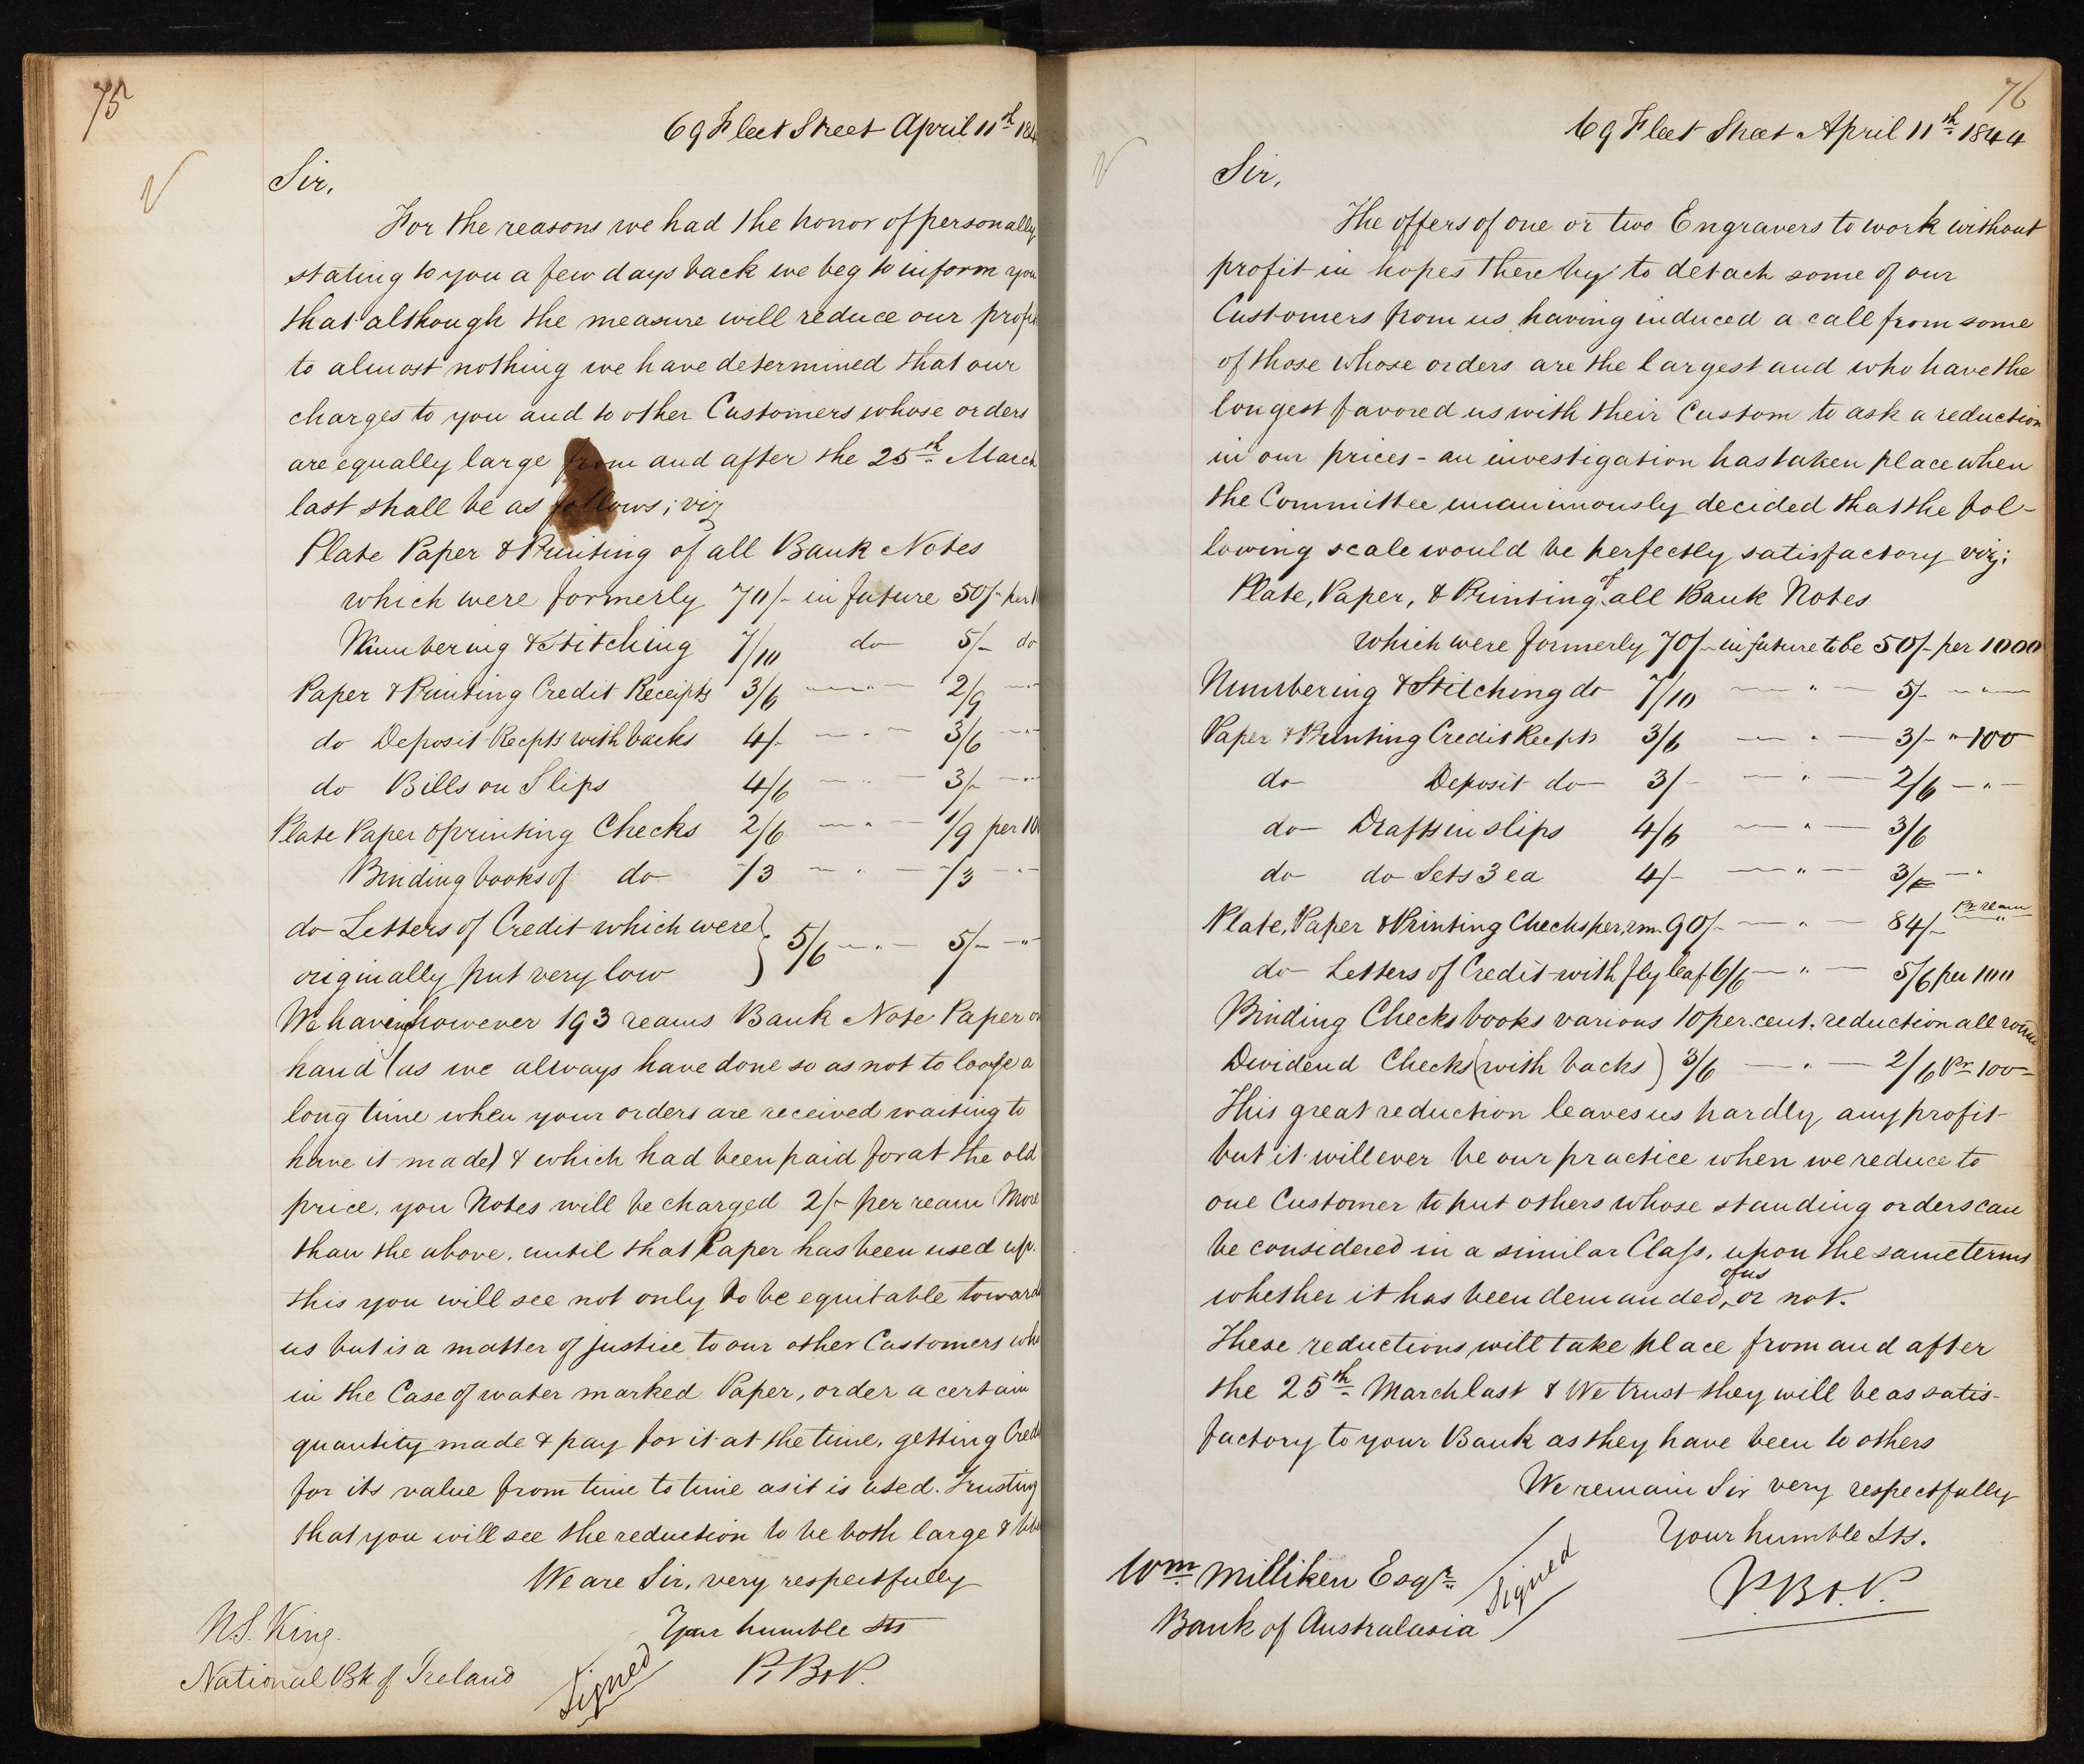 75
69 Fleet Street April 11th 184
Sir,
For the reasons we had the honor of personally
stating to you a few days back we beg to inform you
that although the measure will reduce our profit
to almost nothing we have determined that our
charges to you and to other Customers whose orders
are equally large from and after the 25th March
last shall be as follows; viz
Plate Paper & Printing of all Bank Notes
which were formerly 70/- in future 50/- per 1
Numbering & Stitching 7/10 do 5/- do
Paper & Printing Credit Receipts 3/6 — " — 2/9 — "
do Deposit Recpts with backs 4/- — " — 3/6 — "
do Bills on Slips 4/6 — " — 3/- — "
Plate Paper & printing Checks 2/6 — " — 1/9 per 10
Binding books of do -/3 — " — -/3 — "
do Letters of Credit which were } 5/6 — " — 5/- — "
originally put very low
We having however 193 reams Bank Note Paper on
hand (as we always have done so as not to loose a
long time when your orders are received waiting to
have it made) & which had been paid for at the old
price, you Notes will be charged 2/- per ream More
than the above, until that Paper has been used up.
this you will see not only to be equitable toward
us but is a matter of justice to our other Customers who
in the Case of water marked Paper, order a certain
quantity made & pay for it at the time, getting Cred
for its value from time to time as it is used. Trusting
that you will see the reduction to be both large &
We are Sir, very respectfully
Your humble Sts
N.S. King.
National Bk of Ireland
Signed
P, B & P.
76
69 Fleet Street April 11th 1844
Sir,
The offers of one or two Engravers to work without
profit in hopes thereby to detach some of our
Customers from us having induced a call from some
of those whose orders are the largest and who have the
longest favored us with their Custom to ask a reduction
in our prices - an investigation has taken place when
the Committee unanimously decided that the fol-
lowing scale would be perfectly satisfactory viz;
Plate, Paper, & Printing of all Bank Notes
which were formerly 70/- in future to be 50/- per 1000
Numbering & Stitching do 7/10 — " — 5/- — " —
Paper & Printing Credit Recpts 3/6 — " — 3/- " 100
do Deposit do 3/- — " — 2/6 — " —
do Drafts in slips 4/6 — " — 3/6
do do Sets 3 ea 4/- — " — 3/- — "
Plate, Paper & Printing Checks per rm. 90/- — " — 84/- Pr ream
do Letters of Credit with fly leaf 6/6 — " — 5/6 per 100
Binding Checks books various 10 per cent. reduction all round
Dividend Checks (with backs) 3/6 — " — 2/6 Pr 100-
This great reduction leaves us hardly any profit
but it will ever be our practice when we reduce to
one Customer to put others whose standing orders can
be considered in a similar Class, upon the same terms
whether it has been demanded, of us or not.
These reductions will take place from and after
the 25th March last & We trust they will be as satis-
factory to your Bank as they have been to others
We remain Sir very respectfully
Your humble Sts.
Wm Milliken Esqr.
Bank of Australasia
Signed
P. B & P.